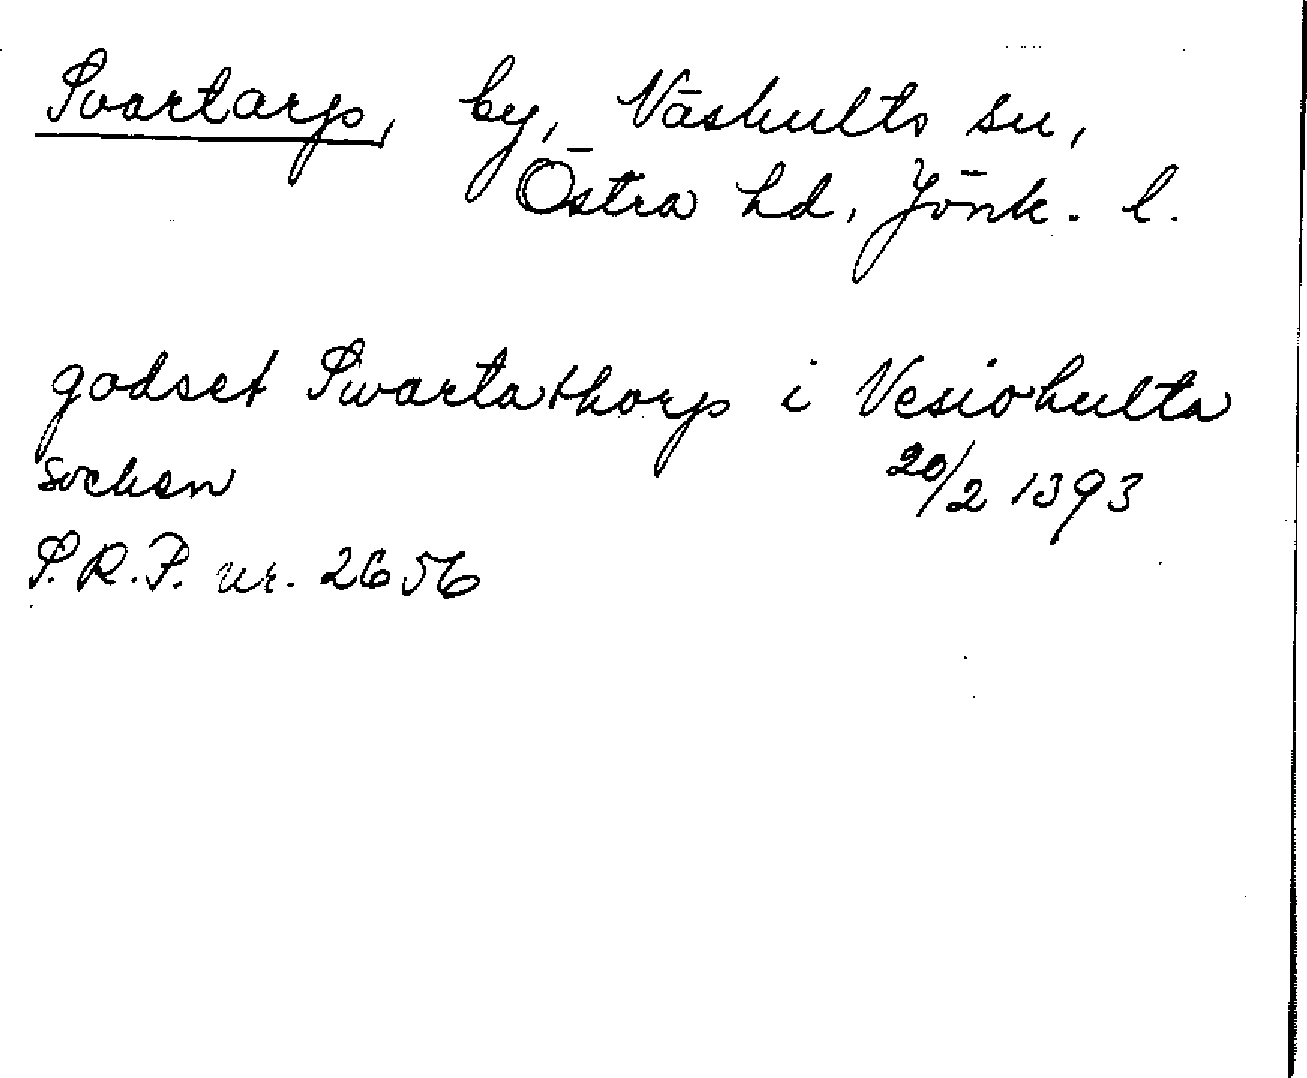 Svartarp, by, Näshults sn,
Östra hd, Jönk. l.
godset Swartathorp i Nesiohulta
socken 20/2 1393
S.R.P. nr. 2656